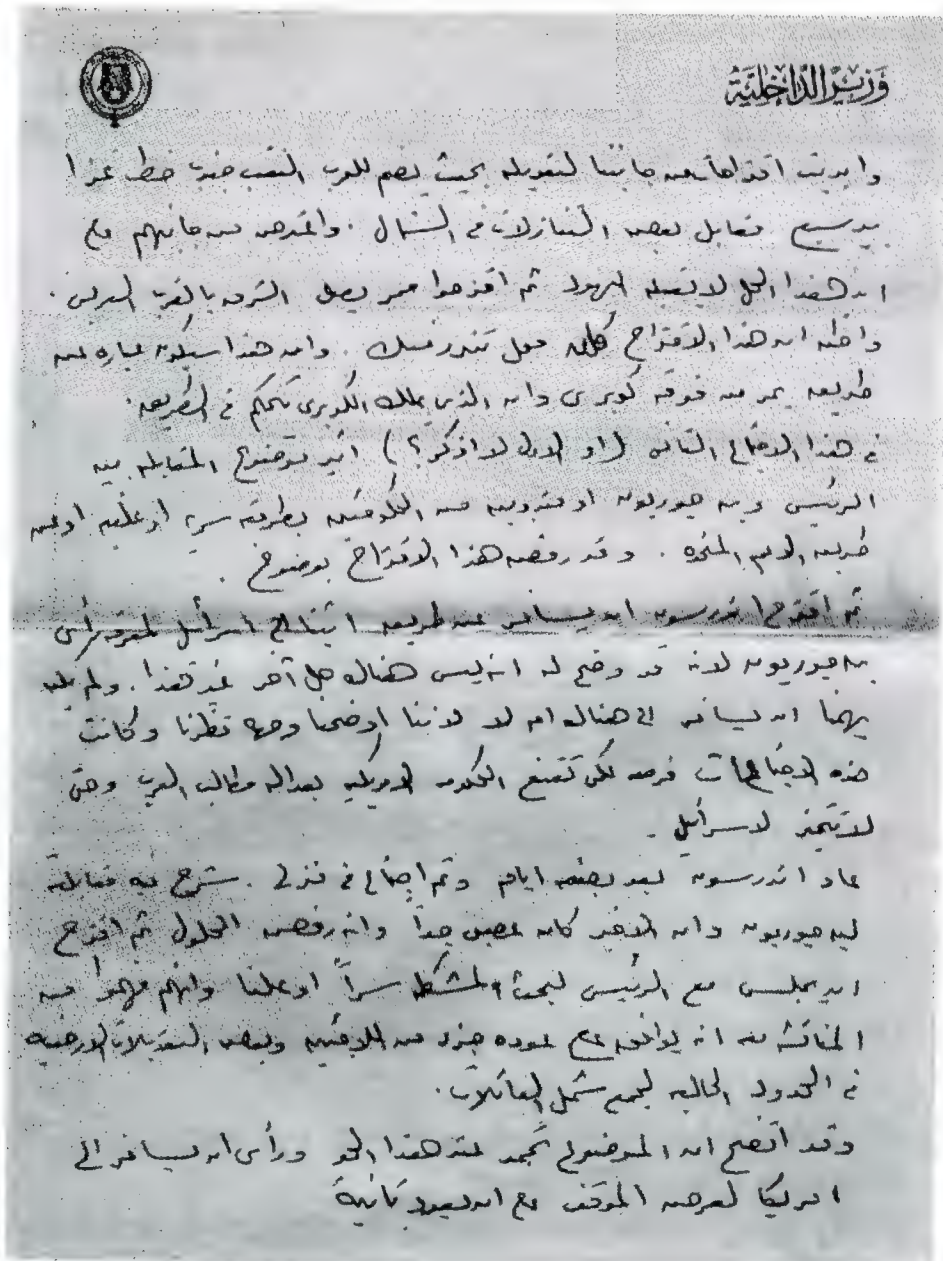 وزير الداخلية
وابديت اقتراحات من جانبنا لتعديله بحيث يضم للعرب النقب جنوب خط غزا
بير سبع مقابل بعض التنازلات في الشمال . واعترض من جانبهم على
ان هذا الحل لا تقبله اليهود ثم اقترحوا ممر يصل الشرق بالغرب العربى .
واظن ان هذا الاقتراح كان محل تندر منك . وان هذا سيكون عباره عن
طريق يمر من فوقه كوبرى وان الذى يملك الكوبرى يتحكم في الطريق .
في هذا الاجتماع الثانى (او الاول لا اذكر؟) اثير موضوع المقابله بين
الرئيس وبن جوريون او مندوبين من الحكومتين بطريقه سريه او علنيه او عن
طريق الامم المتحده . وقد رفض هذا الاقتراح بوضوح .
ثم اقترح اندرسون ان يسافر عن طريق اثينا الى اسرائيل لمعرفة رأى
بن جوريون لانه قد وضح له انه ليس هناك حل آخر غير هذا . ولم يكن
يهمنا ان يسافر الى هناك ام لا لاننا اوضحنا وجهة نظرنا وكانت
هذه الاجتماعات فرصه لكى تقتنع الحكومه الامريكيه بعداله مطالب العرب وحتى
لا تتحيز لاسرائيل .
عاد اندرسون بعد بضعه ايام وتم اجتماع في منزلى . شرح فيه مقابلته
لبن جوريون وان الاخير كان عصبى جداً وانه رفض الحلول ثم اقترح
ان يجلس مع الرئيس لبحث المشكله سراً او علنا وانهم فهموا من
المناقشه معه انه يوافق على عوده جزء من اللاجئين وبعض التعديلات الارضيه
في الحدود الحاليه لجمع شمل العائلات .
وقد اتضح ان الموضوع تجمد عند هذا الحد ورأى ان يسافر الى
امريكا لعرض الموقف على ان يعود ثانية